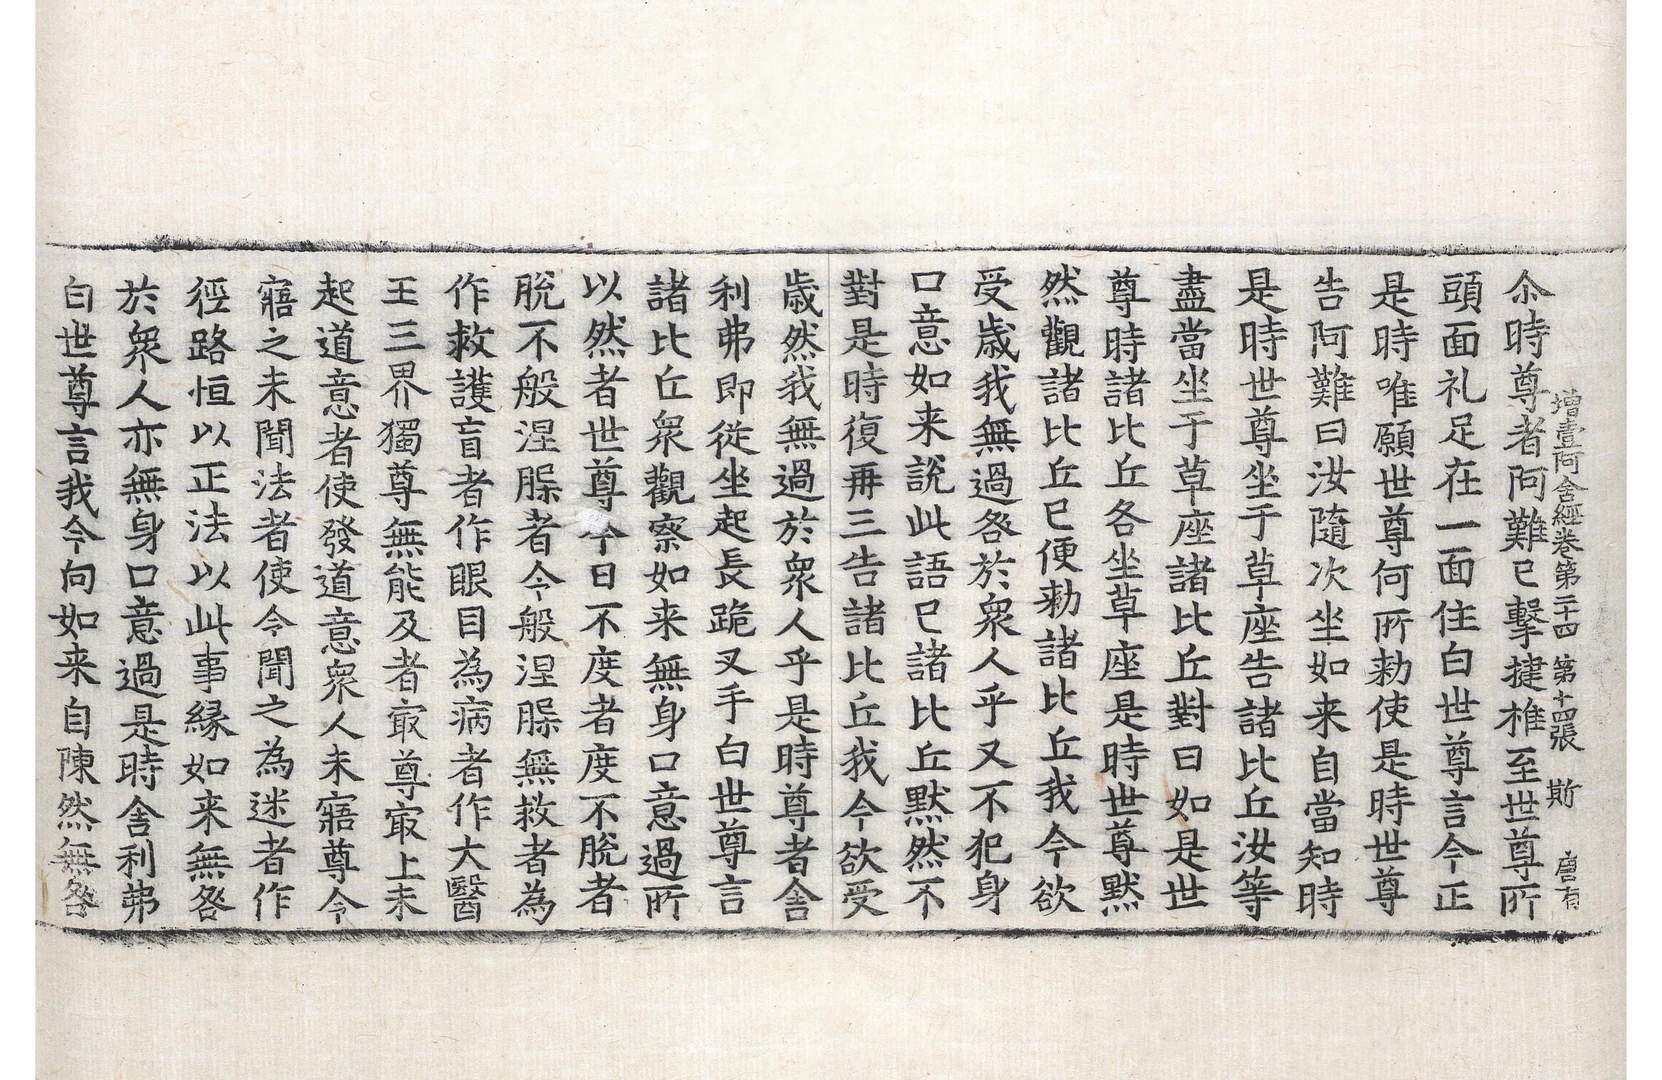 增壹阿含經卷第二十四 第十四張 斯 唐有
尒時尊者阿難已擊揵椎至世尊所
頭面礼足在一面住白世尊言今正
是時唯願世尊何所勑使是時世尊
告阿難曰汝隨次坐如来自當知時
是時世尊坐于草座告諸比丘汝等
盡當坐于草座諸比丘對曰如是世
尊時諸比丘各坐草座是時世尊默
然觀諸比丘已便勑諸比丘我今欲
受歲我無過咎於衆人乎又不犯身
口意如来說此語已諸比丘默然不
對是時復再三告諸比丘我今欲受
歲然我無過於衆人乎是時尊者舍
利弗即從坐起長跪叉手白世尊言
諸比丘衆觀察如来無身口意過所
以然者世尊今日不度者度不脫者
脫不般涅槃者令般涅槃無救者為
作救護盲者作眼目為病者作大醫
王三界獨尊無能及者㝡尊㝡上未
起道意者使發道意衆人未寤尊令
寤之未聞法者使令聞之為迷者作
徑路恒以正法以此事縁如来無咎
於衆人亦無身口意過是時舍利弗
白世尊言我今向如来自陳然無咎